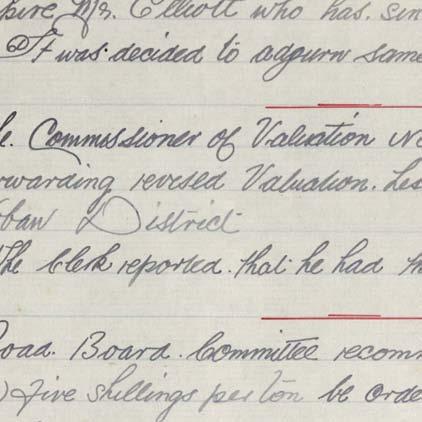 pire Mr. Elliott who has. sin
It was decided to adjurn same
e. Commissioner of Valuation
rwarding revised Valuation. Les
rban District
The Clerk reported. that he had th
Road. Board. Committee recomm
) Five shillings per ton be orde